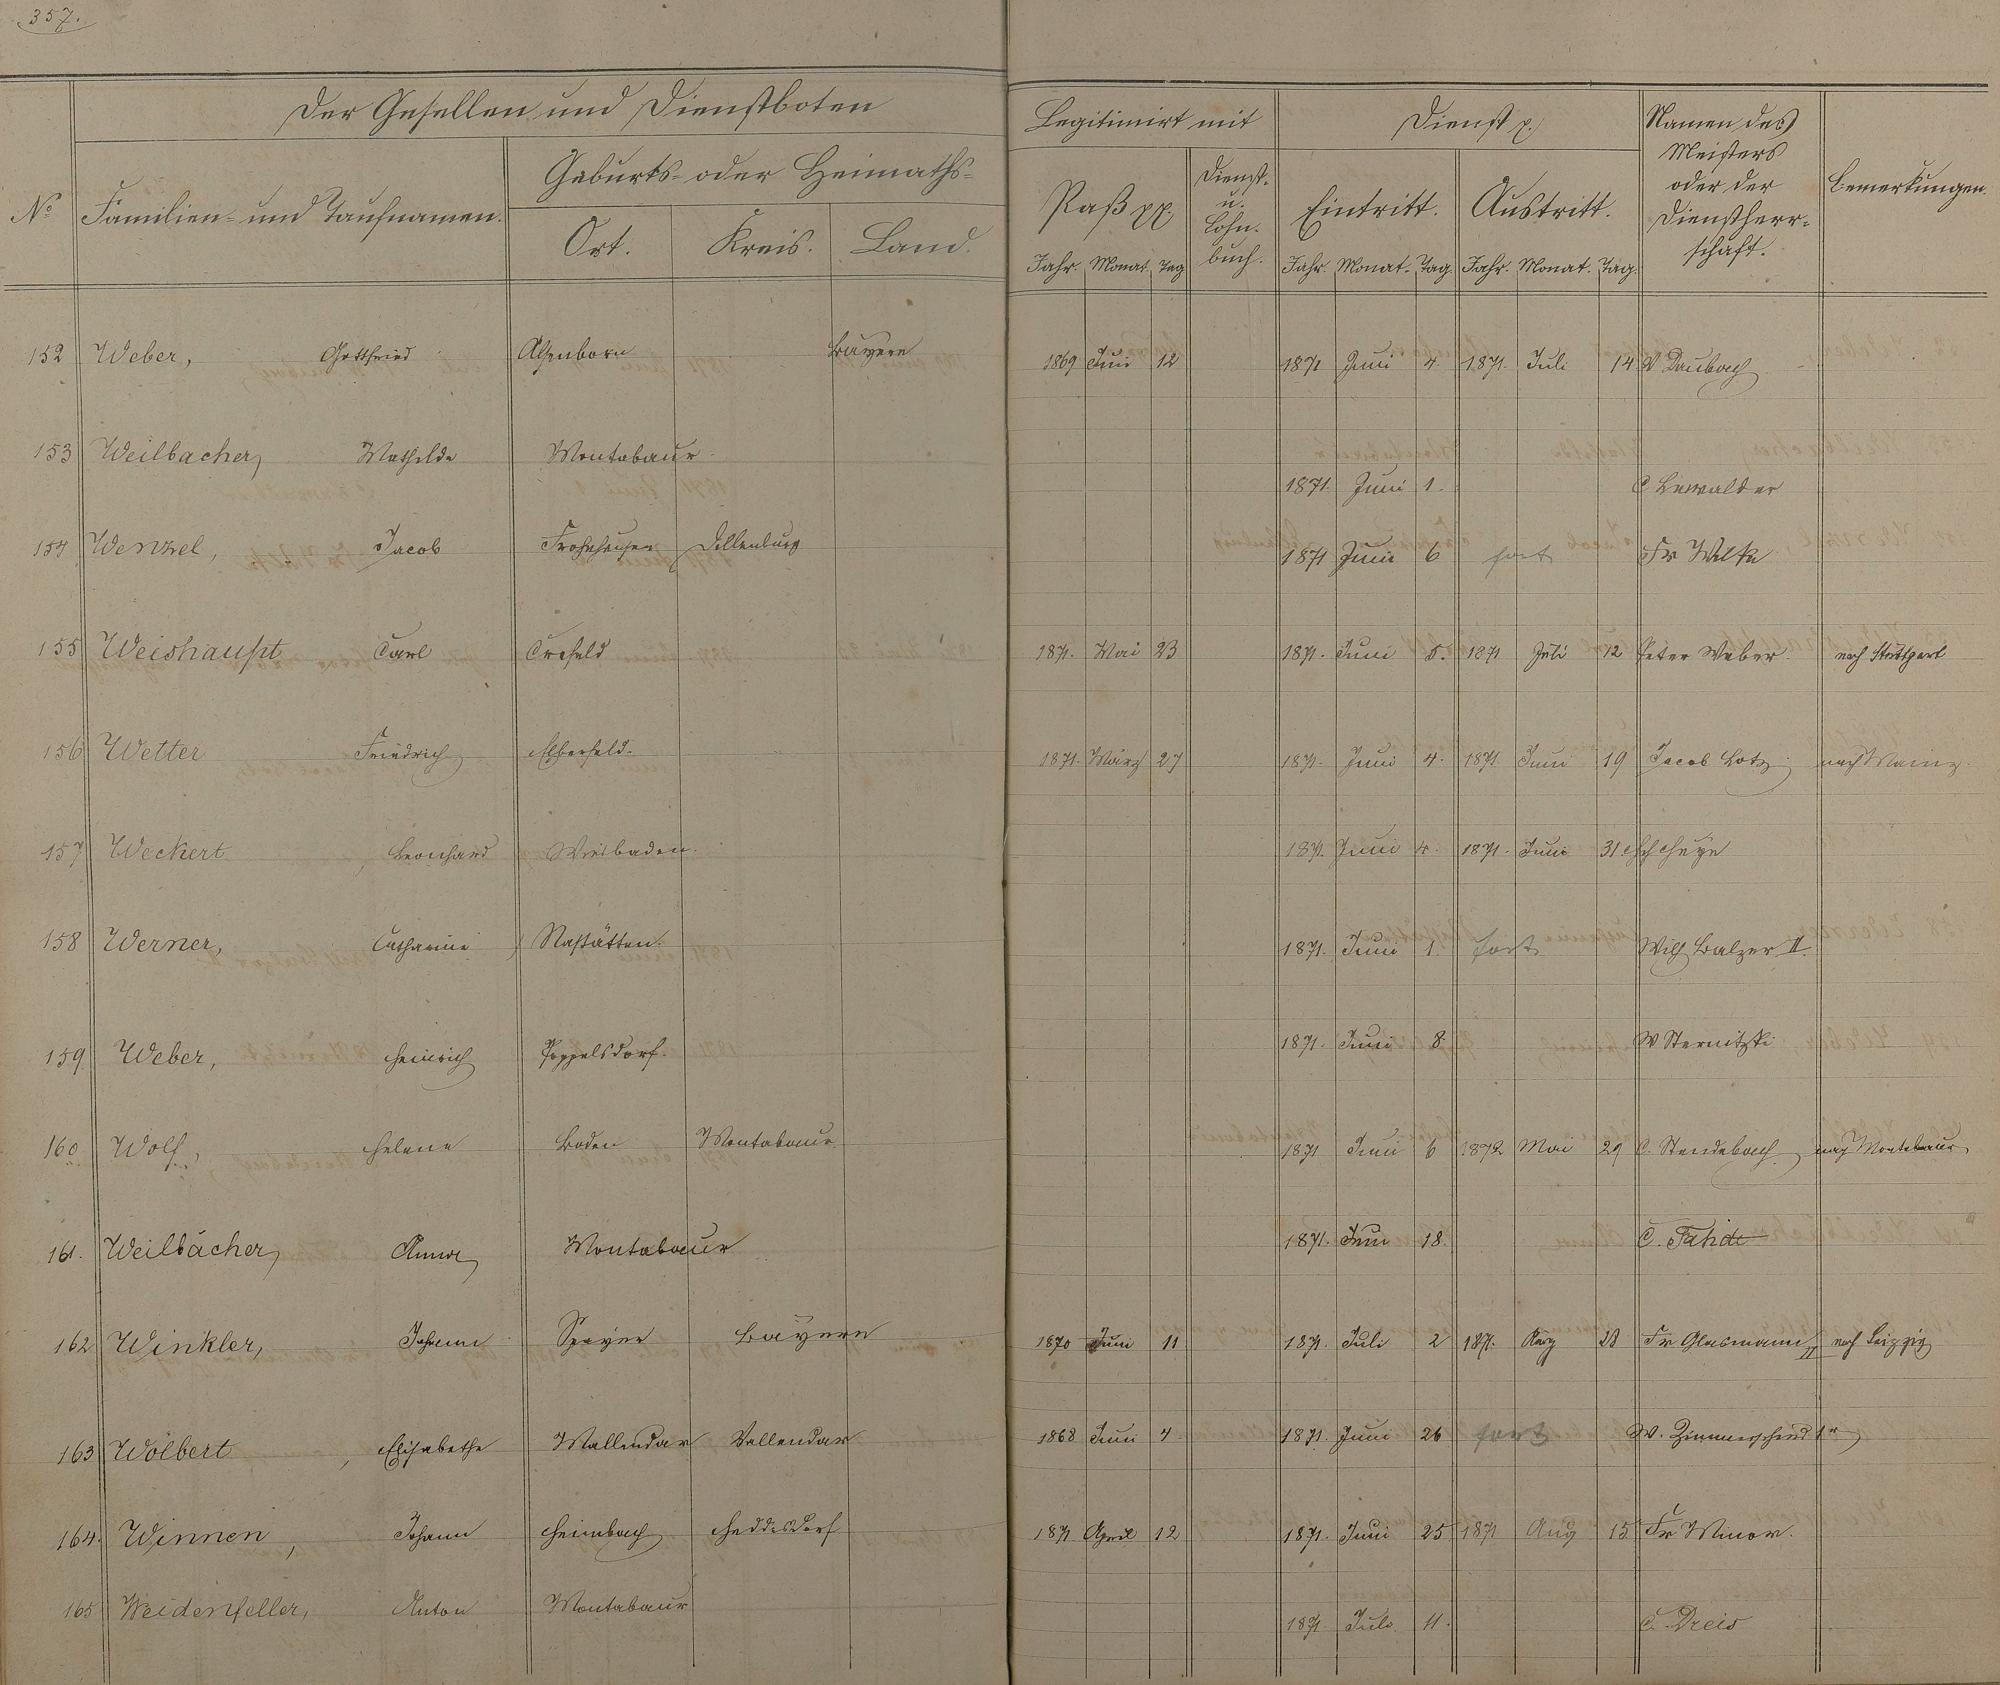 357.
Der Gesellen und Dienstboten
Legitimirt mit
Dienst p.
Namen des Meisters oder der Dienstherrschaft.
Bemerkungen.
No
Familien- und Taufnamen.
Geburts- oder Heimaths-
Ort. Kreis. Land.
Paß pp.
Dienst- u. Lohn-buch.
Eintritt. Austritt.
Jahr. Monat. Tag
Jahr. Monat. Tag. Jahr. Monat. Tag.
152 Weber, Gottfried Alsenborn Bayern 1869 Juni 12 1871 Juni 4. 1871. Juli 14 W Daubach
153 Weilbacher, Mathilde Montabaur 1871. Juni 1. C Lewalder
154 Wenzel, Jacob Frohnhausen Dillenburg 1871 Juni 6 fort Fr Wilke
155 Weishaupt Carl Crefeld 1871. Mai 23 1871. Juni 5. 1871 Juli 12 Peter Weber nach Stuttgart
156 Wetter Friedrich Elberfeld. 1871. März 27 1871. Juni 4. 1871 Juni 19 Jacob Lotz nach Mainz.
157 Weckert, Leonhard Wiesbaden. 1871. Juni 4. 1871. Juni 31.
158 Werner, Catharine Nastätten. 1871. Juni 1. fort Wilh Balzer II.
159. Weber, Heinrich Poppelsdorf. 1871. Juni 8. W Sternitzki
160 Wolf, Helene Boden Montabaur 1871 Juni 6 1872 Mai 29 C. Stendebach nach Montabaur
161. Weilbächer, Anna Montabaur 1871. Juni 18. C. Fahde
162 Winkler, Johann Speyer Bayern 1870 Juni 11 1871. Juli 2 1871. Aug 28 Fr Glasmann II nach Leipzig
163 Wölbert, Elisabethe Vallendar Vallendar 1868 Juni 4 1871. Juni 26 fort W. Zimmerschied 1r
164. Winnen, Johann Heimbach Heddesdorf 1871 April 12 1871. Juni 25 1871 Aug 15 Fr Minor.
165 Weidenfeller, Anton Montabaur 1871 Juli 11. C. Dreis